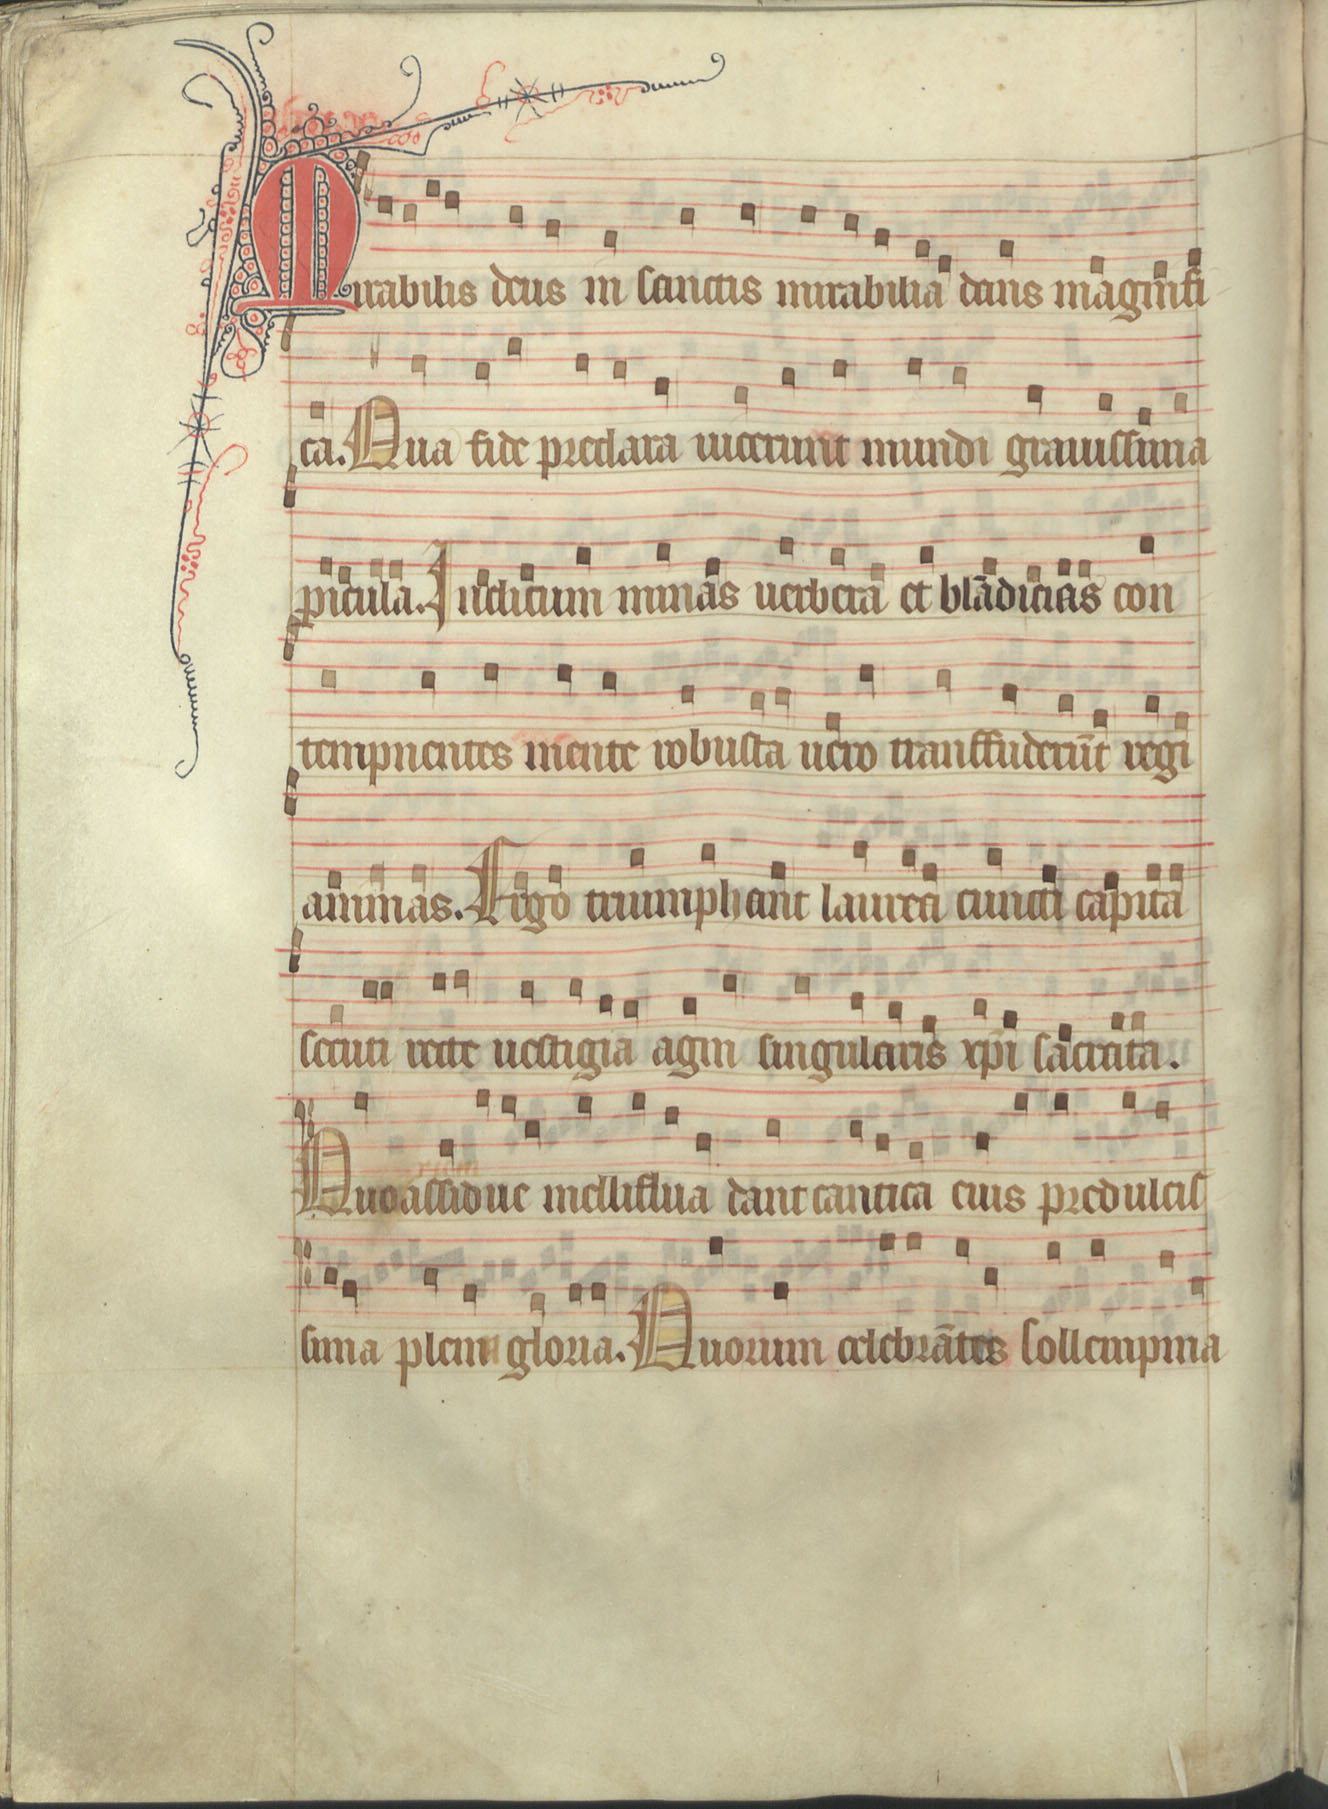 Mirabilis deus in sanctis mirabilia dans magnifi
ca. Qua fide preclara uicerunt mundi grauissima
picula. Indicium minas uerbera et blādicias con
tempnentes mente robusta uero transfuderūt regi
animas. Ergo triumphant laureti cuncti capita
secuti recte uestigia agni singularis xp̄i sacrata.
Quo assidue melliflua dant cantica eius predulcis
sima pleni gloria. Quorum celebrātes sollempnia